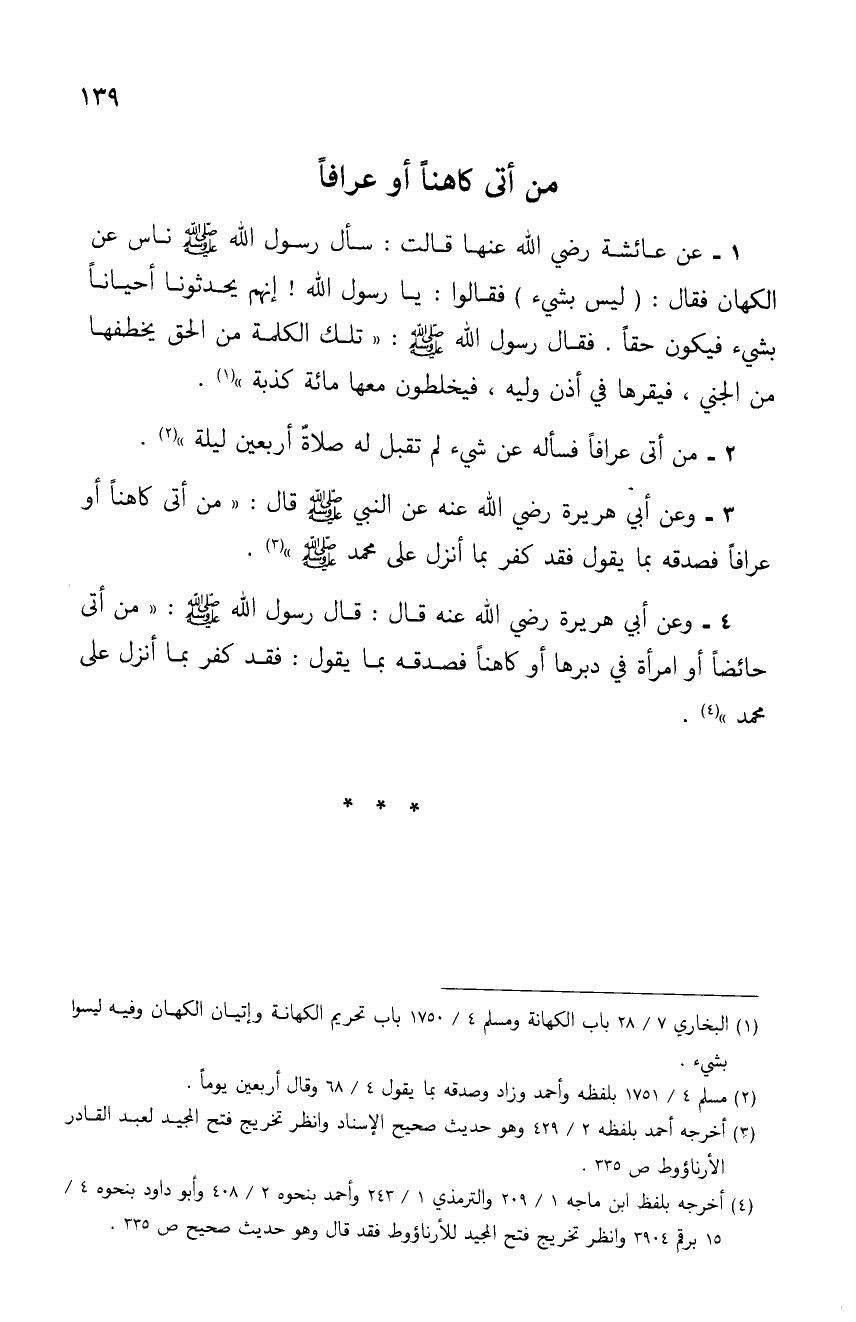 ١٣٩
من أتى كاهناً أو عرافاً
١ ـ عن عـائشـة رضي الله عنهـا قـالت : سـأل رسـول الله ﷺ نـاس عن
الكهان فقال : ( ليس بشيء ) فقـالوا : يـا رسول الله ! إنهم يحـدثونـا أحيـانـاً
بشيء فيكون حقاً . فقـال رسول الله ﷺ : « تلـك الكلمـة من الحق يخطفهـا
من الجني ، فيقرها في أذن وليه ، فيخلطون معها مائة كذبة »(١) .
٢ ـ من أتى عرافاً فسأله عن شيء لم تقبل له صلاةٌ أربعين ليلة »(٢) .
٣ ـ وعن أبي هريرة رضي الله عنه عن النبي ﷺ قال : « من أتى كاهناً أو
عرافاً فصدقه بما يقول فقد كفر بما أنزل على محمد ﷺ »(٣) .
٤ ـ وعن أبي هريرة رضي الله عنه قـال : قـال رسول الله ﷺ : « من أتى
حائضاً أو امرأة في دبرها أو كاهناً فصـدقـه بمـا يقول : فقـد كفر بمـا أنزل على
محمد »(٤) .
* * *
(١) البخاري ٧ / ٢٨ باب الكهانة ومسلم ٤ / ١٧٥٠ باب تحريم الكهانـة وإتيـان الكهـان وفيـه ليسوا
بشيء .
(٢) مسلم ٤ / ١٧٥١ بلفظه وأحمد وزاد وصدقه بما يقول ٤ / ٦٨ وقال أربعين يوماً .
(٣) أخرجه أحمد بلفظه ٢ / ٤٢٩ وهو حديث صحيح الإسناد وانظر تخريج فتح المجيـد لعبـد القـادر
الأرناؤوط ص ٣٣٥ .
(٤) أخرجه بلفظ ابن ماجه ١ / ٢٠٩ والترمذي ١ / ٢٤٣ وأحمد بنحوه ٢ / ٤٠٨ وأبو داود بنحوه ٤ /
١٥ برقم ٣٩٠٤ وانظر تخريج فتح المجيد للأرناؤوط فقد قال وهو حديث صحيح ص ٣٣٥ .